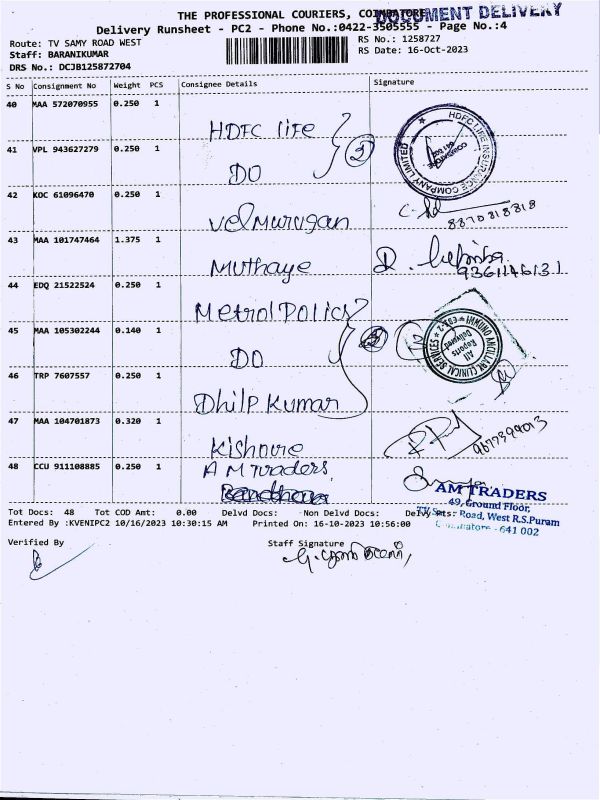 THE PROFESSIONAL COURIERS, COIMBATORE
DOCUMENT DELIVERY
Delivery Runsheet - PC2 - Phone No.:0422-3505555 - Page No.:4
Route: TV SAMY ROAD WEST
RS No.: 1258727
Staff: BARANIKUMAR
RS Date: 16-Oct-2023
DRS No.: DCJB125872704
S No Consignment No Weight PCS Consignee Details Signature
40 MAA 572070955 0.250 1
HDFC life
HDFC LIFE INSURANCE COMPANY LIMITED
COIMBATORE
41 VPL 943627279 0.250 1
DO
2
42 KOC 61096470 0.250 1
Velmurugan
8870818818
43 MAA 101747464 1.375 1
Muthaye
9361146131
44 EDQ 21522524 0.250 1
Metrol Polics
45 MAA 105302244 0.140 1
DO
IMMUNO ANCILLARY CLINICAL SERVICES
All Reports Delivered
46 TRP 7607557 0.250 1
Dhilp Kumar
47 MAA 104701873 0.320 1
Kishore
9677399013
48 CCU 911108885 0.250 1
AM Traders
AM TRADERS
49, Ground Floor,
TV Samy Road, West R.S.Puram
Coimbatore - 641 002
Tot Docs: 48 Tot COD Amt: 0.00 Delvd Docs: Non Delvd Docs: Delvy Amts:
Entered By :KVENIPC2 10/16/2023 10:30:15 AM Printed On: 16-10-2023 10:56:00
Verified By
Staff Signature